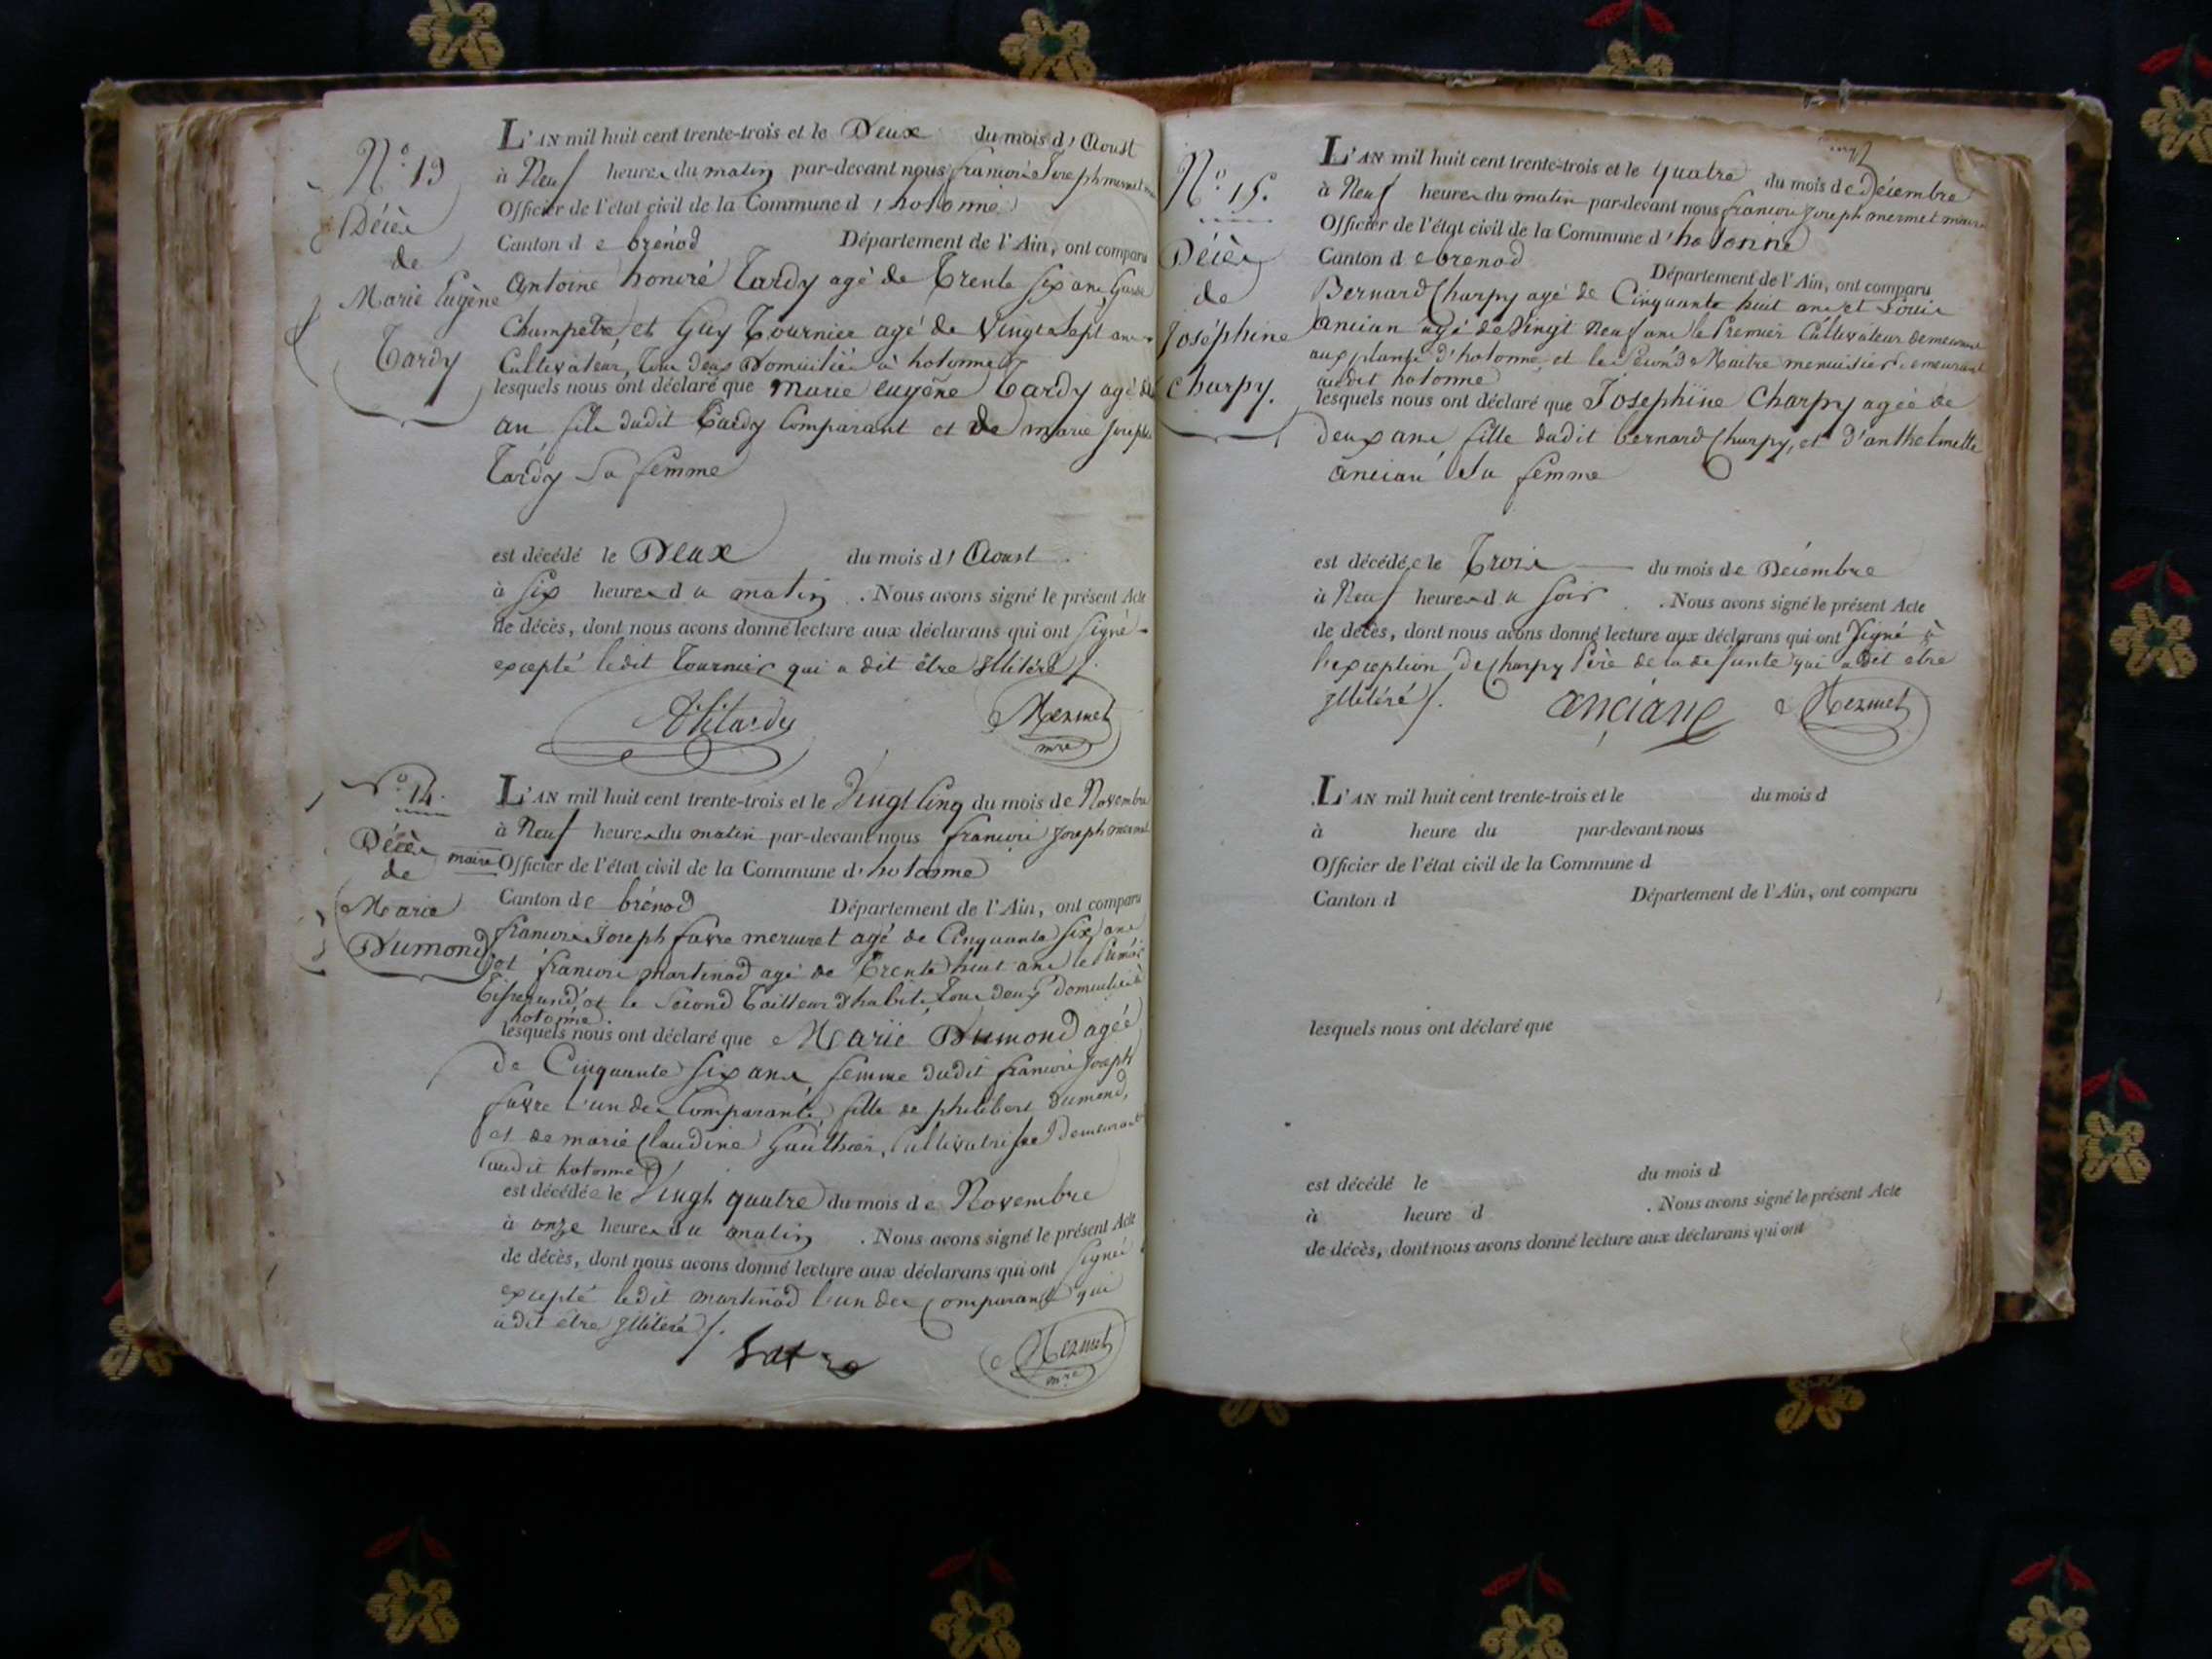 N.o 13
Décès
de
Marie Eugène
Tardy
L'AN mil huit cent trente-trois et le Deux du mois d'Aoust
à Neuf heures du matin par-devant nous françois Joseph mermet
Officier de l'état civil de la Commune d'hotonne
Canton de brénod Département de l'Ain, ont comparu
Antoine honoré Tardy agé de Trente six ans, Garde
Champetre, et Guy Tournier agé de Vingt sept ans
Cultivateur, tous deux Domiciliés à hotonne
lesquels nous ont déclaré que Marie eugène Tardy agé d'un
an, fils dudit Tardy Comparant et de marie Josephte
Tardy Sa femme
est décédé le Deux du mois d'Aoust
à Six heures du matin . Nous avons signé le présent Acte
de décès, dont nous avons donné lecture aux déclarans qui ont signé
excepté ledit Tournier qui a dit être Illitéré /.
Mermet
mre
N.o 14.
Décès
de
Marie
Dumond
L'AN mil huit cent trente-trois et le Vingt Cinq du mois de Novembre
à Neuf heures du matin par-devant nous françois Joseph mermet
maire Officier de l'état civil de la Commune d'hotonne
Canton de brénod Département de l'Ain, ont comparu
françois Joseph favre mercuret agé de Cinquante six ans
et françois martinod agé de Trente huit ans le Premier
Tisserand, et le Second Tailleur d'habits, tous deux domiciliés à
hotonne.
lesquels nous ont déclaré que Marie Dumond agée
de Cinquante six ans, femme dudit françois Joseph
favre l'un des Comparants, fille de philibert Dumond,
et de marie Claudine Gauthier, Cultivatrice Demeurant
audit hotonne
est décédée le Vingt quatre du mois de Novembre
à onze heures du matin . Nous avons signé le présent Acte
de décès, dont nous avons donné lecture aux déclarans qui ont signé
excepté ledit martinod l'un des Comparants qui
a dit être Illitéré /.
favre Mermet
mre
N.o 15.
Décès
de
Joséphine
Charpy.
L'AN mil huit cent trente-trois et le quatre du mois de Décembre
à Neuf heures du matin par-devant nous françois Joseph mermet maire
Officier de l'état civil de la Commune d'hotonne
Canton de brenod Département de l'Ain, ont comparu
Bernard Charpy agé de Cinquante huit ans et Louis
ancian agé de Vingt Neuf ans le Premier Cultivateur demeurant
aux plans d'hotonne, et le Second Maitre menuisier demeurant
audit hotonne
lesquels nous ont déclaré que Josephine Charpy agée de
deux ans, fille dudit bernard Charpy, et d'anthelmette
ancian Sa femme
est décédée le Trois du mois de Décembre
à Neuf heures du soir . Nous avons signé le présent Acte
de décès, dont nous avons donné lecture aux déclarans qui ont signé à
l'exception de Charpy Père de la defunte qui a dit etre
Illitéré /. anciane Mermet
L'AN mil huit cent trente-trois et le du mois d
à heure du par-devant nous
Officier de l'état civil de la Commune d
Canton d Département de l'Ain, ont comparu
lesquels nous ont déclaré que
est décédé le du mois d
à heure d . Nous avons signé le présent Acte
de décès, dont nous avons donné lecture aux déclarans qui ont